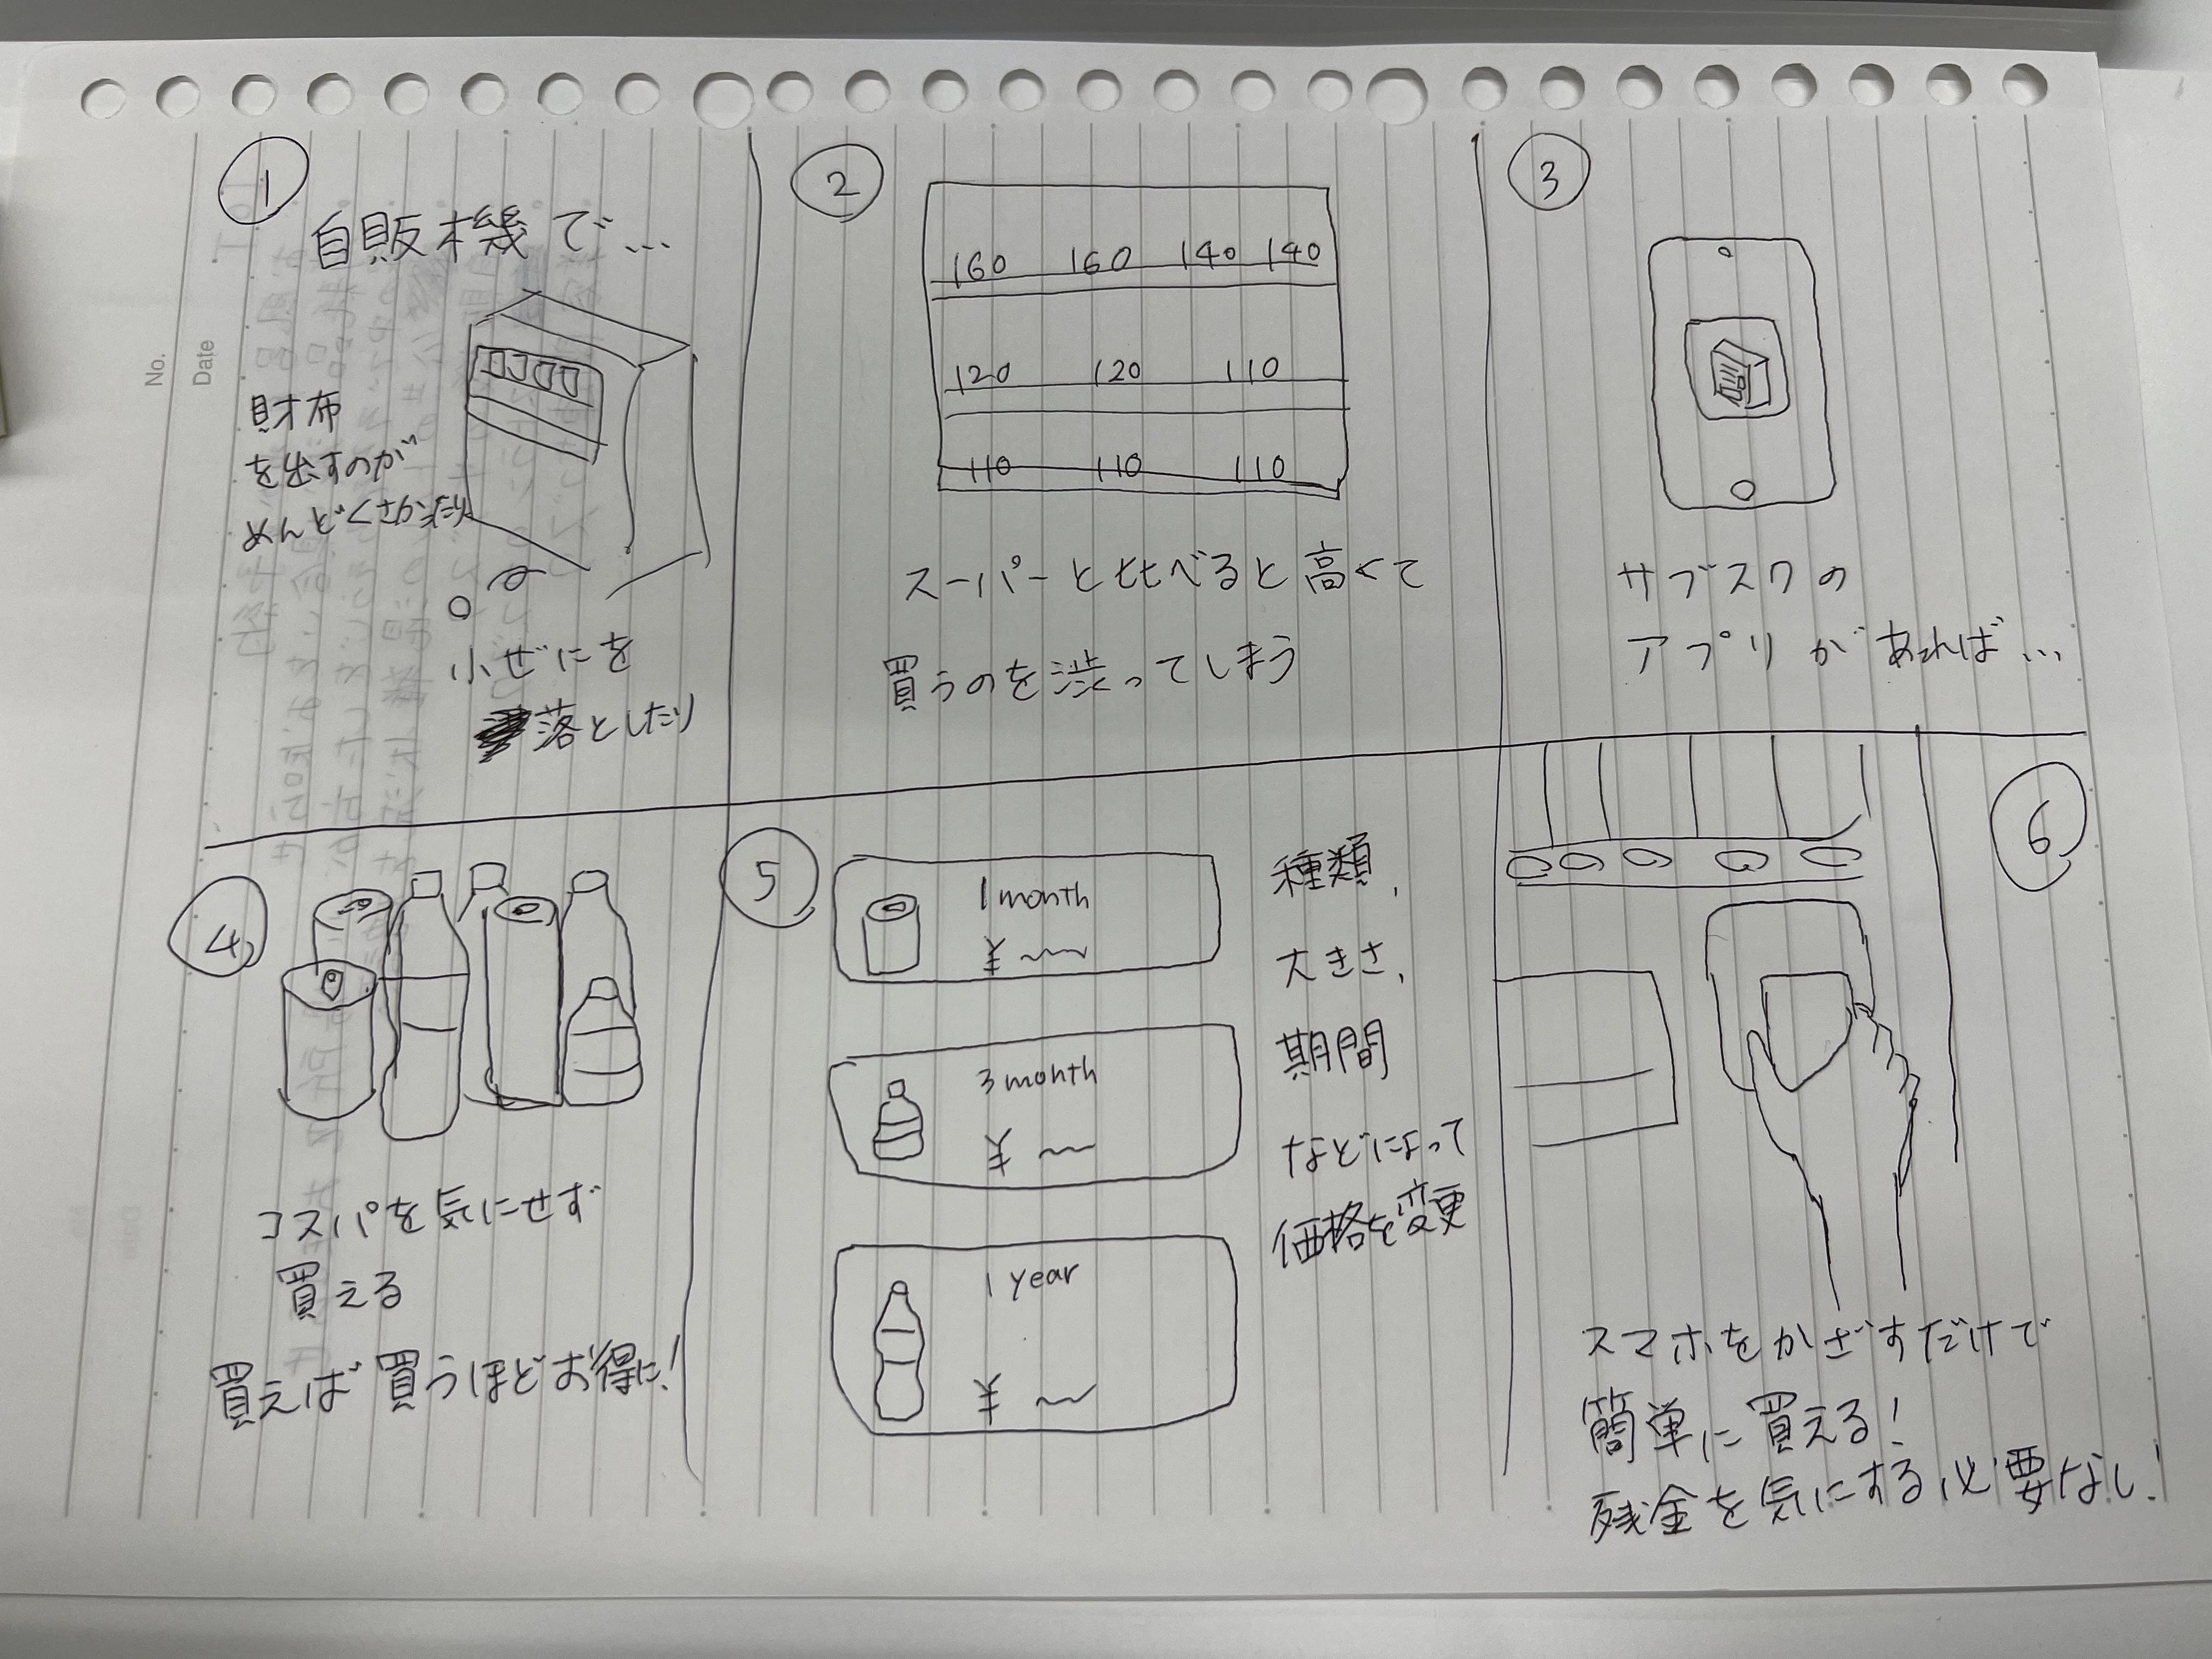 No.
Date
①
自販機で...
財布
を出すのが
めんどくさかったり
小ぜにを
落としたり
②
160 160 140 140
120 120 110
110 110 110
スーパーと比べると高くて
買うのを渋ってしまう
③
サブスクの
アプリがあれば...
④
コスパを気にせず
買える
買えば買うほどお得に!
⑤
1 month
¥
3 month
¥
1 year
¥
種類、
大きさ、
期間
などによって
価格を変更
⑥
スマホをかざすだけで
簡単に買える!
残金を気にする必要なし!